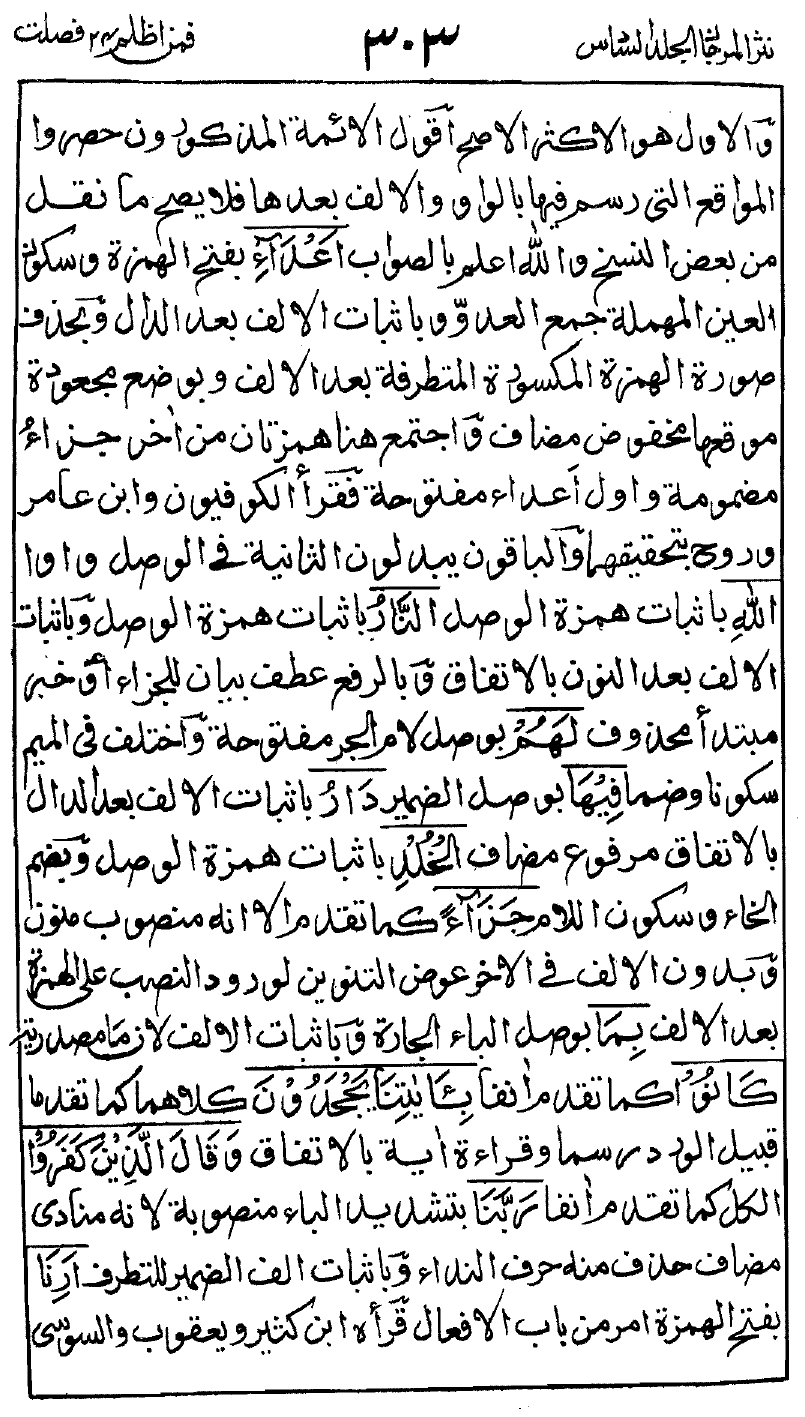 نثر المرجان الجلد السادس ٣٠٣ فمن اظلم ٢٤ فصلت
وَالاول هو الاكثر الاصح أقول الائمة المذكورون حصروا
المواقع التي رسم فيها بالواو والالف بعدها فلا يصح ما نقل
من بعض النسخ والله اعلم بالصواب اَعْدَآءِ بفتح الهمزة وسكون
العين المهملة جمع العدوّ وباثبات الالف بعد الدال وَبحذف
صورة الهمزة المكسورة المتطرفة بعد الالف وبوضع مجعودة
موقعها مخفوض مضاف وَاجتمع هنا همزتان من اٰخر جزاءُ
مضمومة واول اَعداء مفتوحة فَقرأ الكوفيون وابن عامر
وروح بتحقيقهما وَالباقون يبدلون الثانية في الوصل واوا
اللهِ باثبات همزة الوصل النَّارُ باثبات همزة الوصل وَباثبات
الالف بعد النون بالاتفاق وَبالرفع عطف بيان للجزاء أو خبر
مبتدأ محذوف لَهُمْ بوصل لام الجر مفتوحة وَاختلف في الميم
سكونا وضما فِيْهَا بوصل الضمير دَارُ باثبات الالف بعد الدال
بالاتفاق مرفوع مضاف الْخُلْدِ باثبات همزة الوصل وَبضم
الخاء وسكون اللام جَزَآءً كما تقدم الا انه منصوب منون
وَبدون الالف في الاخر عوض التنوين لورود النصب على الهمزة
بعد الالف بِمَا بوصل الباء الجارة وَباثبات الالف لان مَا مصدرية
كَانُوْا كما تقدم اٰنفا بِـَٔايٰتِنَا يَجْحَدُوْنَ كلاهما كما تقدما
قبيل الورد رسما وقراءة اٰية بالاتفاق وَقَالَ الَّذِيْنَ كَفَرُوْا
الكل كما تقدم اٰنفا رَبَّنَا بتشديد الباء منصوبة لانه منادى
مضاف حذف منه حرف النداء وَباثبات الف الضمير للتطرف اَرِنَا
بفتح الهمزة امر من باب الافعال قَرأه ابن كثير ويعقوب والسوسى